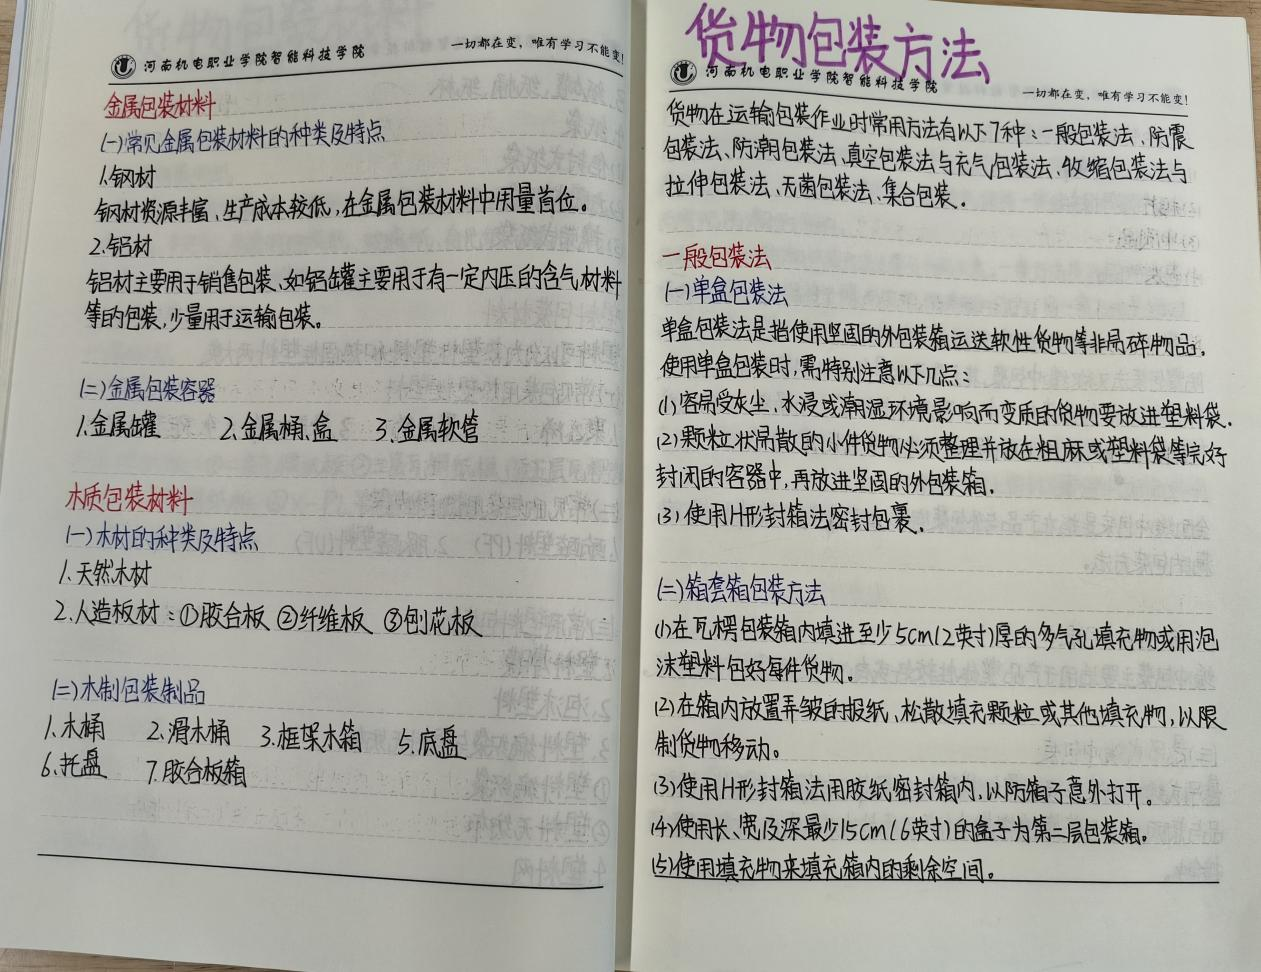 河南机电职业学院智能科技学院
一切都在变，唯有学习不能变！
金属包装材料
(一)常见金属包装材料的种类及特点
1.钢材
钢材资源丰富、生产成本较低，在金属包装材料中用量首位。
2.铝材
铝材主要用于销售包装、如铝罐主要用于有一定内压的含气材料
等的包装，少量用于运输包装。
(二)金属包装容器
1.金属罐 2.金属桶、盒 3.金属软管
木质包装材料
(一)木材的种类及特点
1.天然木材
2.人造板材：①胶合板 ②纤维板 ③刨花板
(二)木制包装制品
1.木桶 2.滑木桶 3.框架木箱 5.底盘
6.托盘 7.胶合板箱
货物包装方法
河南机电职业学院智能科技学院
一切都在变，唯有学习不能变！
货物在运输包装作业时常用方法有以下7种：一般包装法、防震
包装法、防潮包装法、真空包装法与充气包装法、收缩包装法与
拉伸包装法、无菌包装法、集合包装.
一般包装法
(一)单盒包装法
单盒包装法是指使用坚固的外包装箱运送软性货物等非易碎物品，
使用单盒包装时，需特别注意以下几点：
(1)容易受灰尘、水浸或潮湿环境影响而变质的货物要放进塑料袋.
(2)颗粒状易散的小件货物必须整理并放在粗麻或塑料袋等完好
封闭的容器中，再放进坚固的外包装箱.
(3)使用H形封箱法密封包裹.
(二)箱套箱包装方法
(1)在瓦楞包装箱内填进至少5cm(2英寸)厚的多气孔填充物或用泡
沫塑料包好每件货物。
(2)在箱内放置弄皱的报纸，松散填充颗粒或其他填充物，以限
制货物移动。
(3)使用H形封箱法用胶纸密封箱内，以防箱子意外打开。
(4)使用长、宽及深最少15cm(6英寸)的盒子为第二层包装箱。
(5)使用填充物来填充箱内的剩余空间。